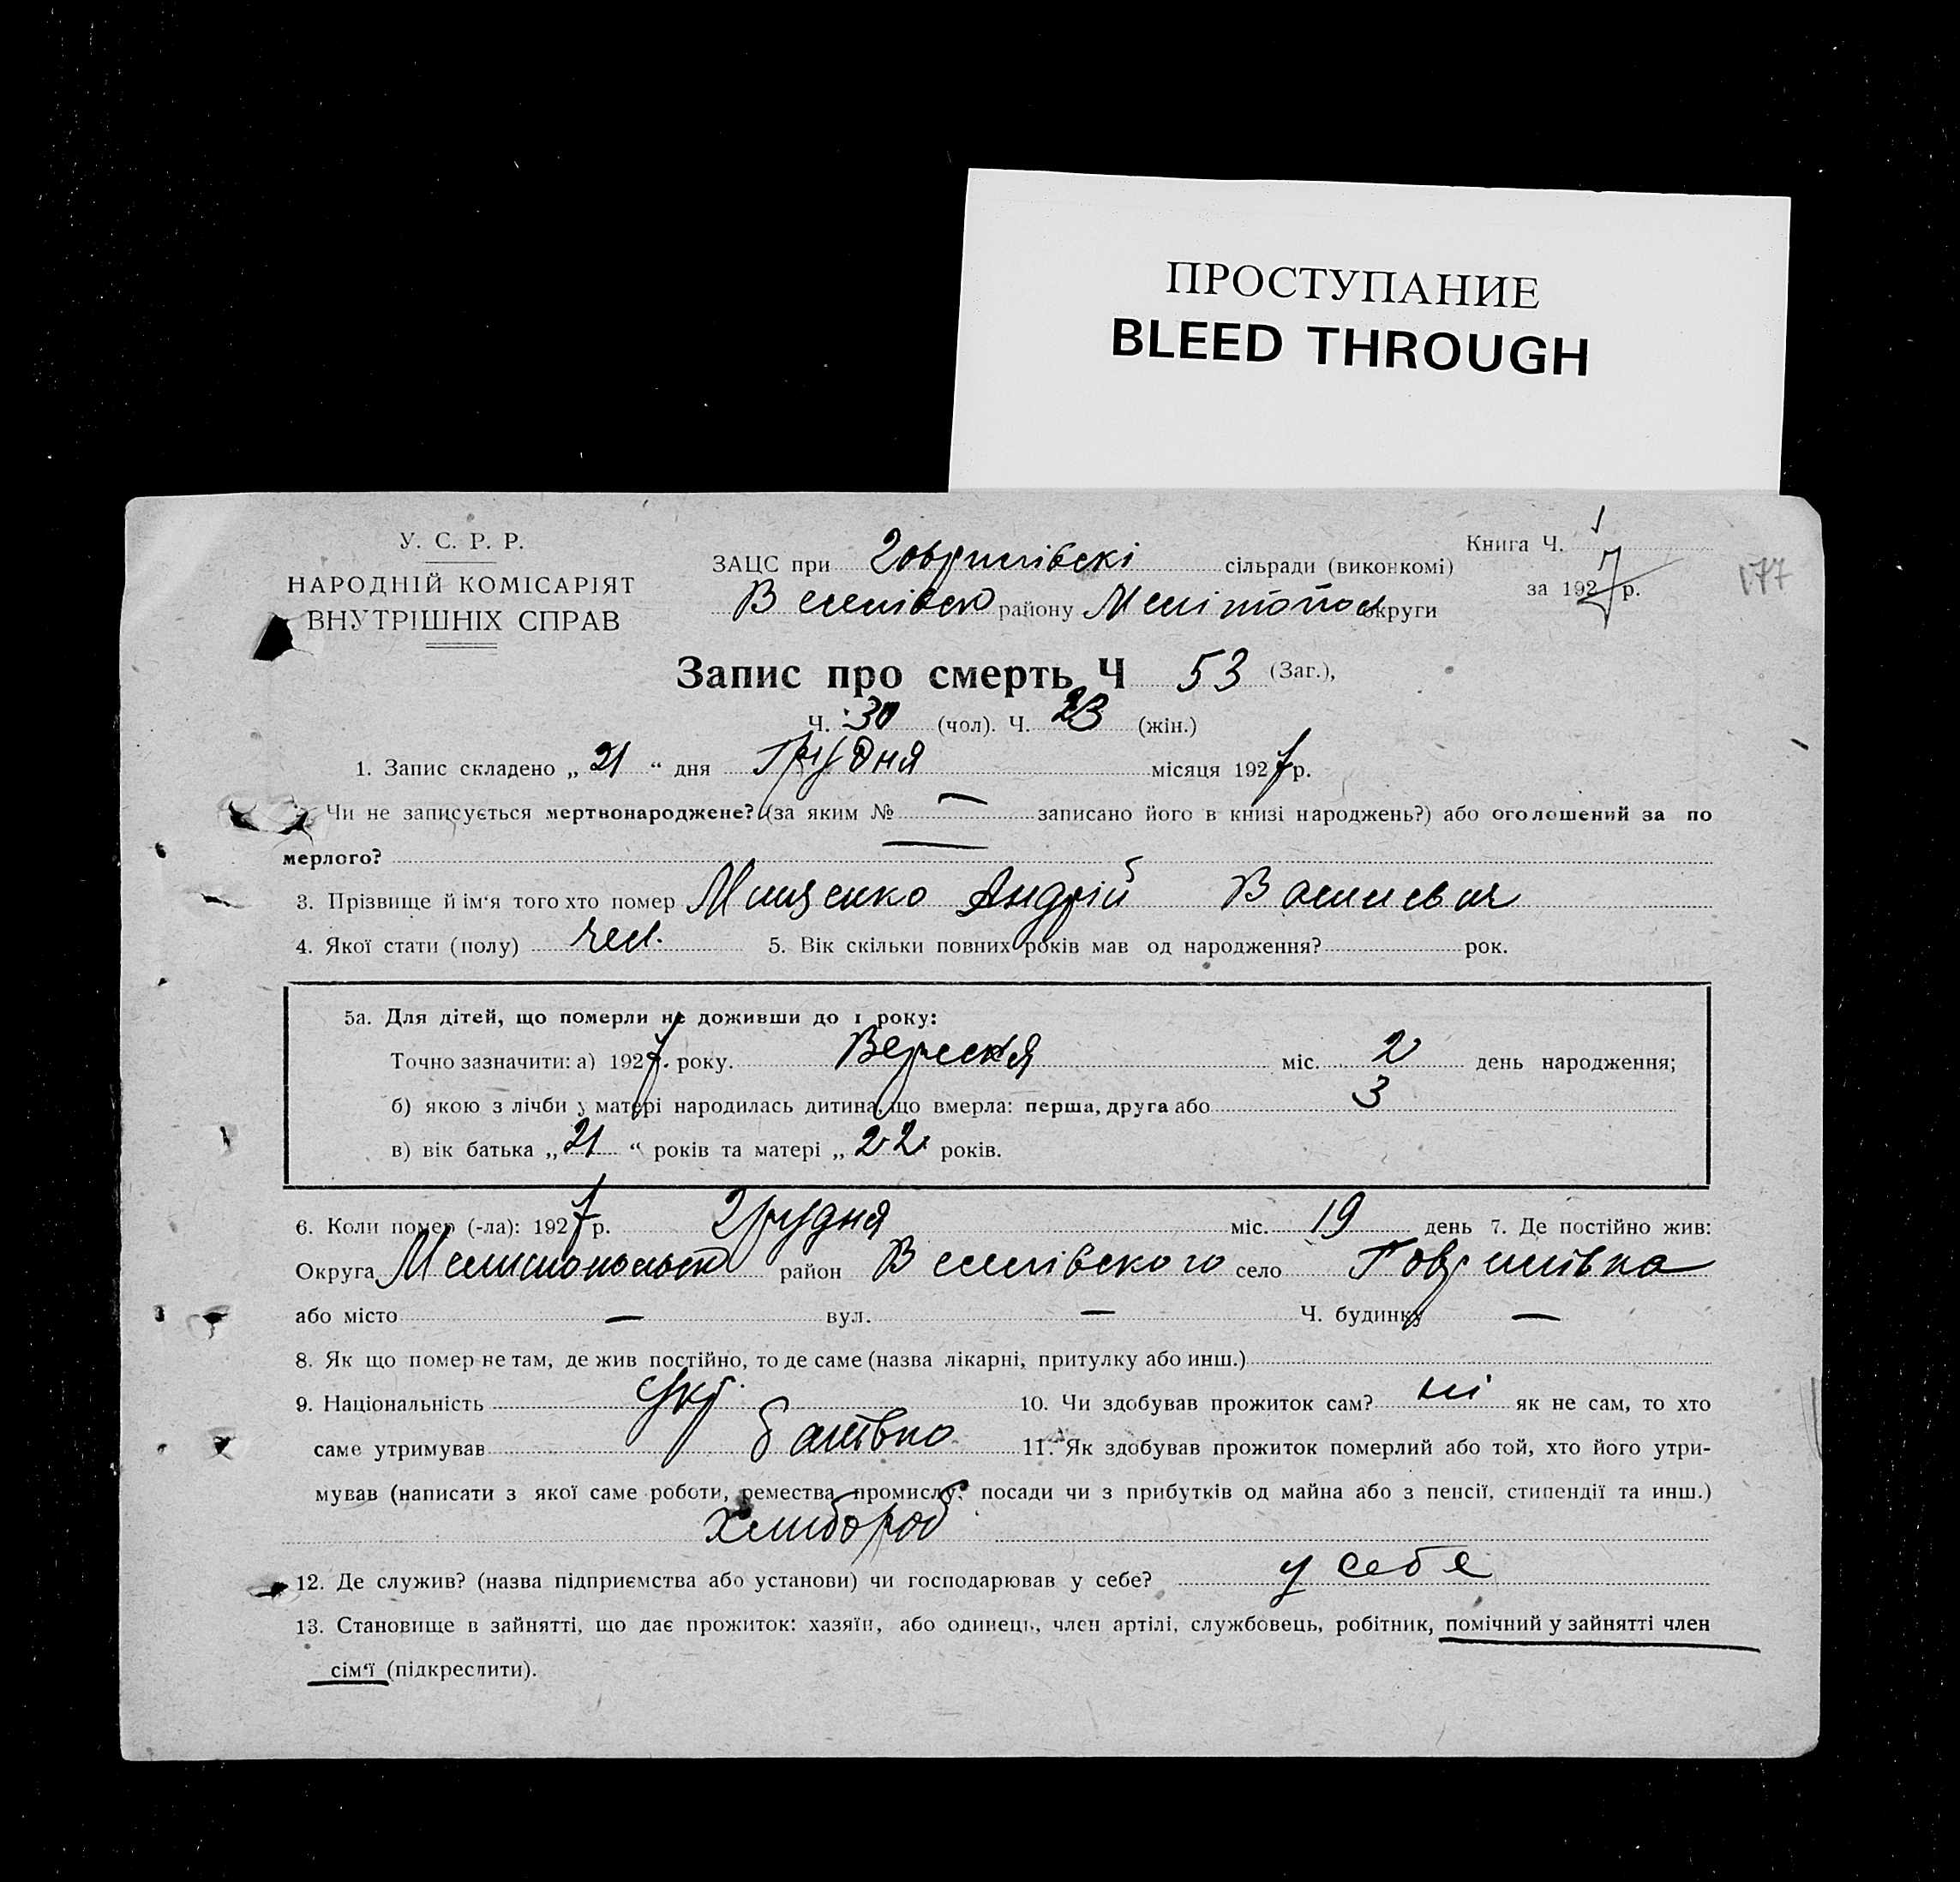 ПРОСТУПАНИЕ
BLEED THROUGH
У. С. Р. Р.
НАРОДНІЙ КОМІСАРІЯТ
ВНУТРІШНІХ СПРАВ
ЗАЦС при сільради (виконкомі)
району Мелітопол округи
Книга Ч. 1
за 1927 р.
177
Запис про смерть Ч 53 (Заг.),
Ч. 30 (чол). Ч. 23 (жін.)
1. Запис складено „ 21 “ дня Грудня місяця 1927 р.
Чи не записується мертвонароджене? (за яким № — записано його в книзі народжень?) або оголошений за по
мерлого? —
3. Прізвище й ім'я того хто помер Мищенко Андрій Василевич
4. Якої стати (полу) чел. 5. Вік скільки повних років мав од народження? рок.
5а. Для дітей, що померли не доживши до 1 року:
Точно зазначити: а) 1927. року. Вересня міс. 2 день народження;
б) якою з лічби у матері народилась дитина, що вмерла: перша, друга або 3
в) вік батька „ 21 “ років та матері „ 22 років.
6. Коли помер (-ла): 1927 р. Грудня міс. 19 день 7. Де постійно жив:
Округа район Веселівского село
або місто — вул. — Ч. будинку —
8. Як що помер не там, де жив постійно, то де саме (назва лікарні, притулку або инш.)
9. Національність укр. 10. Чи здобував прожиток сам? ні як не сам, то хто
саме утримував батько 11. Як здобував прожиток померлий або той, хто його утри-
мував (написати з якої саме роботи, ремества, промислу, посади чи з прибутків од майна або з пенсії, стипендії та инш.)
хлибороб
12. Де служив? (назва підприємства або установи) чи господарював у себе? у себе
13. Становище в зайнятті, що дає прожиток: хазяїн, або одинець, член артілі, службовець, робітник, помічний у зайнятті член
сім'ї (підкреслити).